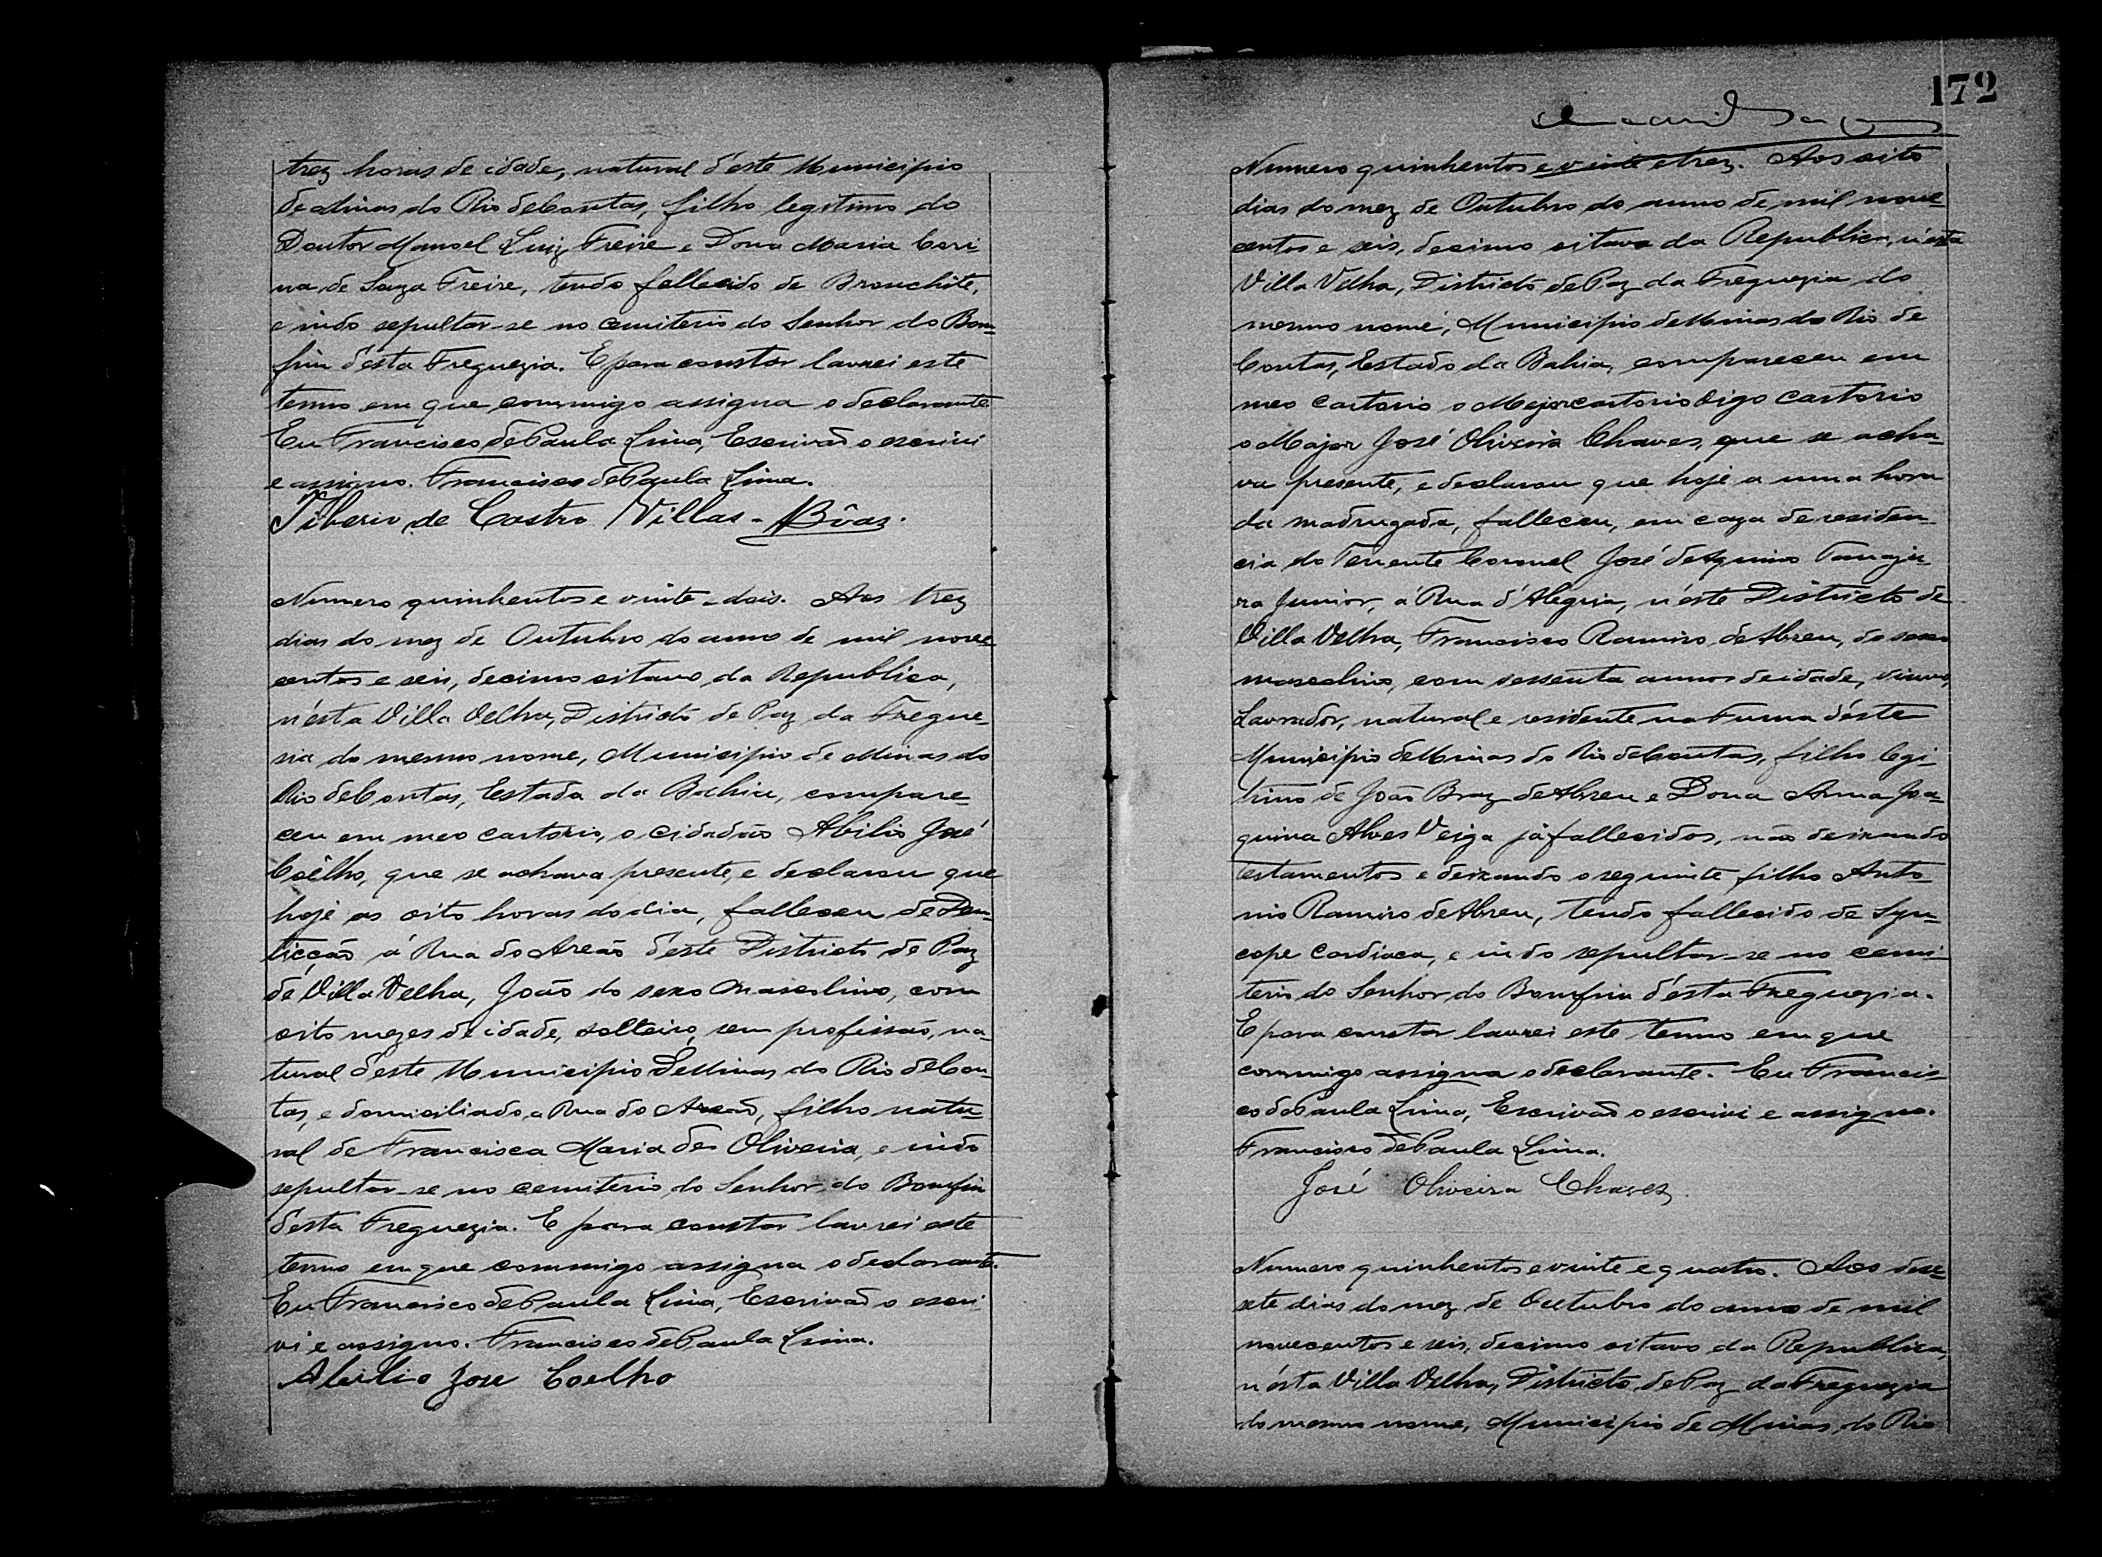 trez horas de idade, natural d'este Municipio
de Minas do Rio de Contas, filho legitimo do
Doutor Manoel Luiz Freire e Dona Maria Cori-
na de Souza Freire, tendo fallecido de Bronchite,
e indo sepultar-se no cemiterio do Senhor do Bom-
fim d'esta Freguezia. E para constar lavrei este
termo em que commigo assigna o declarante
Eu Francisco de Paula Lima, Escrivão o escrivi
e assigno. Francisco de Paula Lima.
Tiberio de Castro Villas-Bôas.
Numero quinhentos e vinte-dois. Aos trez
dias do mez de Outubro do anno de mil nove-
centos e seis, decimo oitavo da Republica,
n'esta Villa Velha, Districto de Paz da Fregue-
sia do mesmo nome, Municipio de Minas do
Rio de Contas, Estado da Bahia, compare-
ceu em meo cartorio, o cidadão Abilio José
Coêlho, que se achava presente, e declarou que
hoje as oito horas do dia, falleceu de Den-
ticção á Rua do Areão d'este Districto de Paz
de Villa Velha, João do sexo masculino, com
oito mezes de idade, solteiro, sem profissão, na-
tural d'este Municipio de Minas do Rio de Con-
tas, e domiciliado a Rua do Areão, filho natu-
ral de Francisca Maria de Oliveira, e indo
sepultar-se no cemiterio do Senhor do Bomfim
d'esta Freguezia. E para constar lavrei este
termo em que commigo assigna o declarante.
Eu Francisco de Paula Lima, Escrivão o escri-
vi e assigno. Francisco de Paula Lima.
Abilio Jose Coelho
172
Numero quinhentos e vinte e trez. Aos oito
dias do mez de Outubro do anno de mil nove-
centos e seis, decimo oitavo da Republica, n'esta
Villa Velha, Districto de Paz da Freguezia do
mesmo nome, Municipio de Minas do Rio de
Contas, Estado da Bahia, compareceu em
meo cartorio o Major cartorio digo cartorio
o Major José Oliveira Chaves, que se acha-
va presente, e declarou que hoje a uma hora
da madrugada, falleceu, em caza de residen-
cia do Tenente Coronel José de Aquino Tanaju-
ra Junior, á Rua d'Alegria, n'este Districto de
Villa Velha, Francisco Ramiro de Abreu, do sexo
masculino, com sessenta annos de idade, viuvo,
Lavrador, natural e residente na Furna d'este
Municipio de Minas do Rio de Contas, filho legi-
timo de João Braz de Abreu e Dona Anna Joa-
quina Alves Veiga já fallecidos, não deixando
testamentos e deixando o seguinte filho Anto-
nio Ramiro de Abreu, tendo fallecido de Syn-
cope cardiaca, e indo sepultar-se no cemi-
terio do Senhor do Bomfim d'esta Freguezia.
E para constar lavrei este termo em que
commigo assigna o declarante. Eu Francis-
co de Paula Lima, Escrivão o escrivi e assigno.
Francisco de Paula Lima.
José Oliveira Chaves
Numero quinhentos e vinte e quatro. Aos dese-
sete dias do mez de Outubro do anno de mil
novecentos e seis, decimo oitavo da Republica,
n'ésta Villa Velha, Districto de Paz da Freguezia
do mesmo nome, Municipio de Minas do Rio